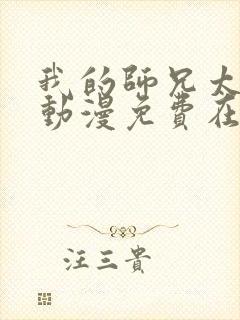 我的師兄太
動漫免費在
汪三貴